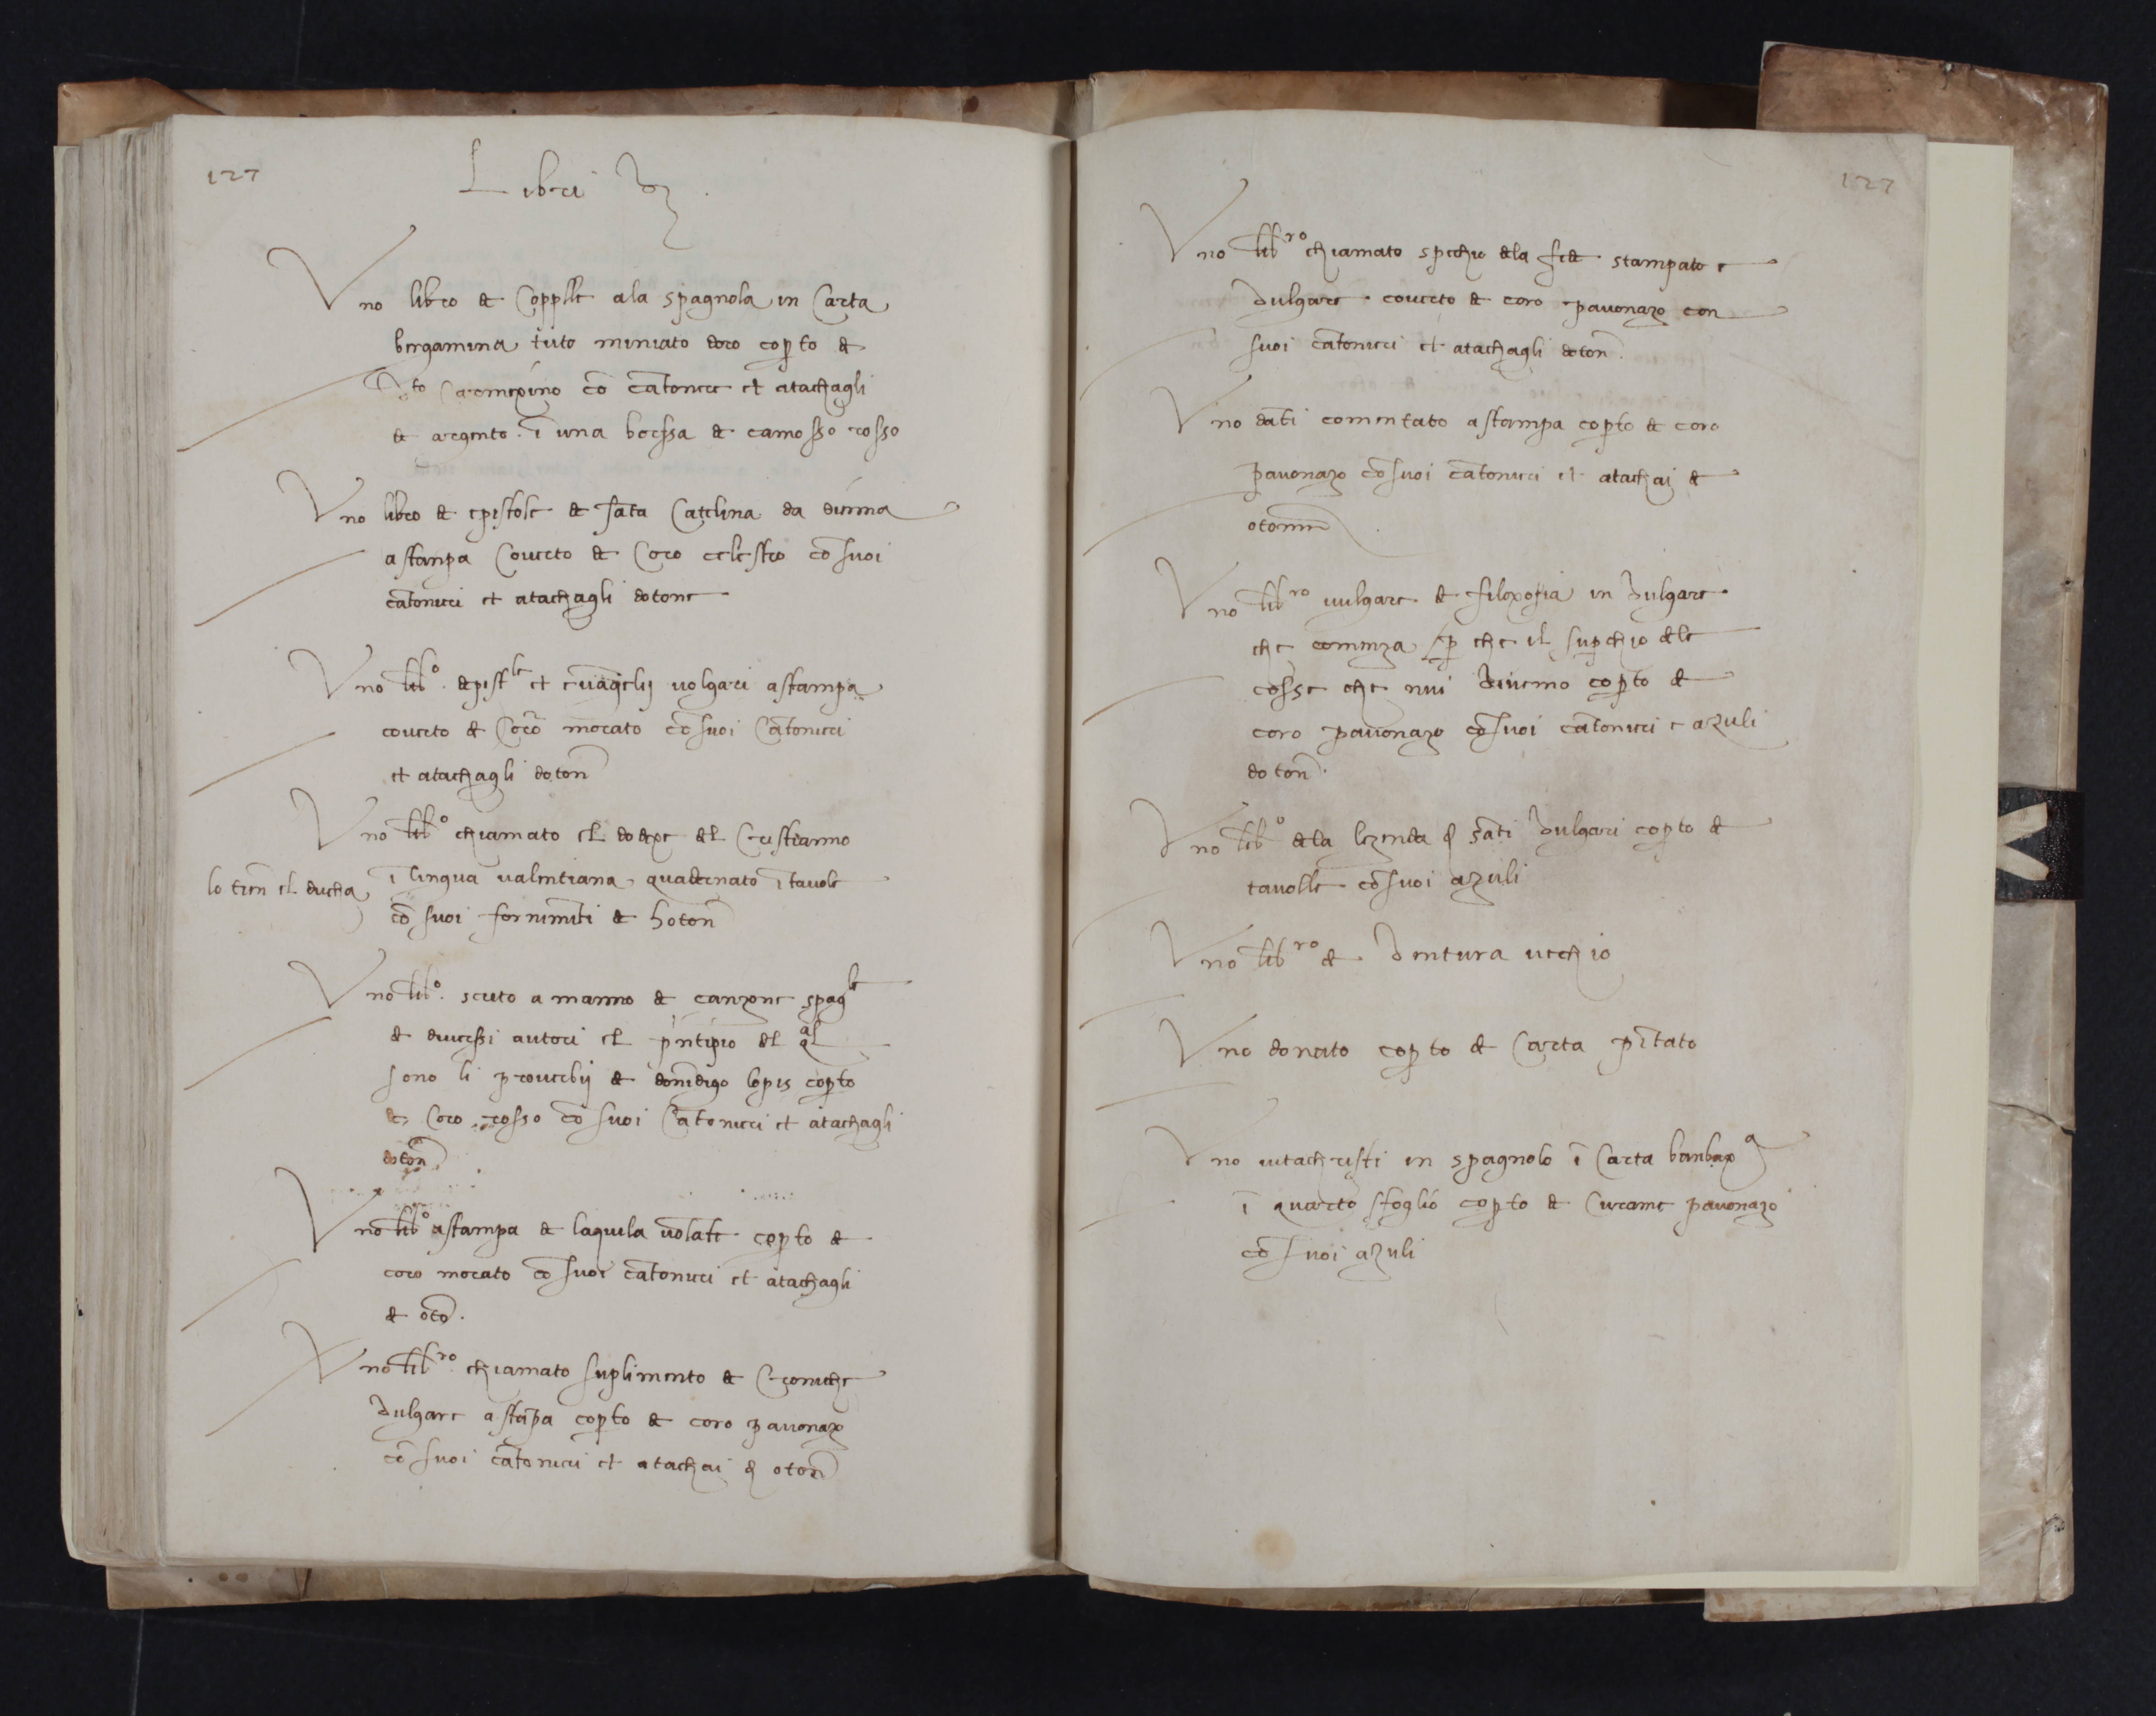 127
Libri
Uno libro de Copple ala spagnola in Carta
bergamina tuto miniato doro coperto de
Veluto Carmexino cō cātonere et atachagli
de argento ī una borssa de camosso rosso
Uno libro de epistole de santa Catelina da Siena
a stampa Coverto de Coro celestro cō suoi
cātoneri et atachagli dotone
Uno libº depistle et evāgelij volgari a stampa
coverto de Coro morato cō suoi Cātoneri
et atachagli doton
Uno libº chiamato el dodexe del Cristianno
ī lingua valentiana quadernato ī tavole
lo tien el ducha
cō suoi fornimēti de hoton
Uno libº scrito a manno de canzone spagle
de diverssi autori el prīcipio del qal
sono li proverbij de domēdigo lopis coperto
de Coro rosso cō suoi Cātoneri et atachagli
doton
Uno libº a stampa de laquila volāte coperto de
coro morato cō suoi cātoneri et atachagli
de otō.
Uno libro chiamato suplimento de Croniche
Vulgare a stāpa coperto de coro pavonazo
cō suoi cātoneri et atachai de oton
127
Uno libro chiamato spechio dela fede stampato e
Vulgare coverto de coro pavonazo con
suoi cātoneri et atachagli doton.
Uno dāti comentato a stampa coperto de coro
pavonazo cō suoi cātoneri et atachai de
otonne
Uno libro vulgare de filoxofia in Vulgare
che comenza per che il superchio dele
cosse che nui coperto de
coro pavonazo cō suoi cātoneri e azuli
doton.
Uno libº dela lezenda de sāti Vulgari coperto de
tavolle cō suoi azuli
Uno libro de Ventura vechio
Uno donato coperto de Carta pītato
Uno vitachristi in spagnolo ī Carta banbaxa
ī quarto sfoglio coperto de Curame pavonazo
cō suoi azuli